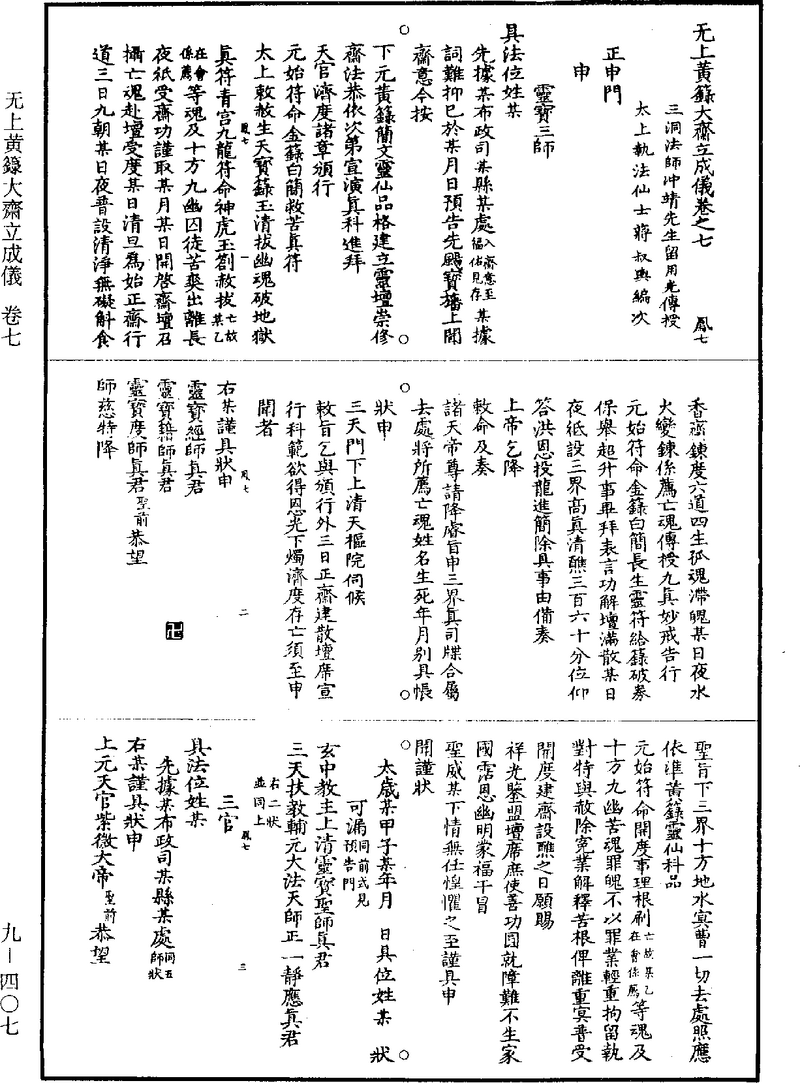 无上黃籙大齋立成儀卷之七 鳳七
三洞法師沖靖先生留用光傳授
太上執法仙士蔣叔輿編次
正申門
申
靈寶三師
具法位姓某
先據某布政司某縣某處入齋意至福佑見存某據
詞難抑已於某月日預告先颺寶旛上聞
齋意今按
下元黃籙簡文靈仙品格建立靈壇崇修
齋法恭依次第宣演真科進拜
天官濟度諸章頒行
元始符命金籙白簡救苦真符
太上敕赦生天寶籙玉清拔幽魂破地獄
鳳七 一
真符青宮九龍符命神虎玉劄赦拔亡故某乙
在會係薦等魂及十方九幽囚徒苦爽出離長
夜祗受齋功謹取某月某日開啓齋壇召
攝亡魂赴壇受度某日清旦為始正齋行
道三日九朝某日夜普設清淨無礙斛食
香齋鍊度六道四生孤魂滯魄某日夜水
火變鍊係薦亡魂傳授九真妙戒告行
元始符命金籙白簡長生靈符給籙破券
保舉超升事畢拜表言功解壇滿散某日
夜祗設三界高真清醮三百六十分位仰
答洪恩投龍進簡除具事由備奏
上帝乞降
敕命及奏
諸天帝尊請降睿旨申三界真司牒合屬
去處將所薦亡魂姓名生死年月別具帳
狀申
三天門下上清天樞院伺候
敕旨乞與頒行外三日正齋建散壇席宣
行科範欲得恩光下燭濟度存亡須至申
聞者
鳳七 二
右某謹具狀申
靈寶經師真君
靈寶籍師真君
靈寶度師真君聖前恭望
師慈特降
卍
聖旨下三界十方地水冥曹一切去處照應
依準黃籙靈仙科品
元始符命開度事理根刷亡故某乙在會係薦等魂及
十方九幽苦魂罪魄不以罪業輕重拘留執
對特與赦除冤業解釋苦根俾離重冥普受
開度建齋設醮之日願賜
祥光鑒盟壇席庶使善功圓就障難不生家
國霑恩幽明蒙福干冒
聖威某下情無任惶懼之至謹具申
聞謹狀
太歲某甲子某年月 日具位姓某 狀
可漏同前式見預告門
玄中教主上清靈寶聖師真君
三天扶教輔元大法天師正一靜應真君
右二狀並同上
鳳七 三
三官
具法位姓某
先據某布政司某縣某處詞同五師狀
右某謹具狀申
上元天官紫微大帝聖前恭望
无上黃籙大齋立成儀 卷七
九—四〇七